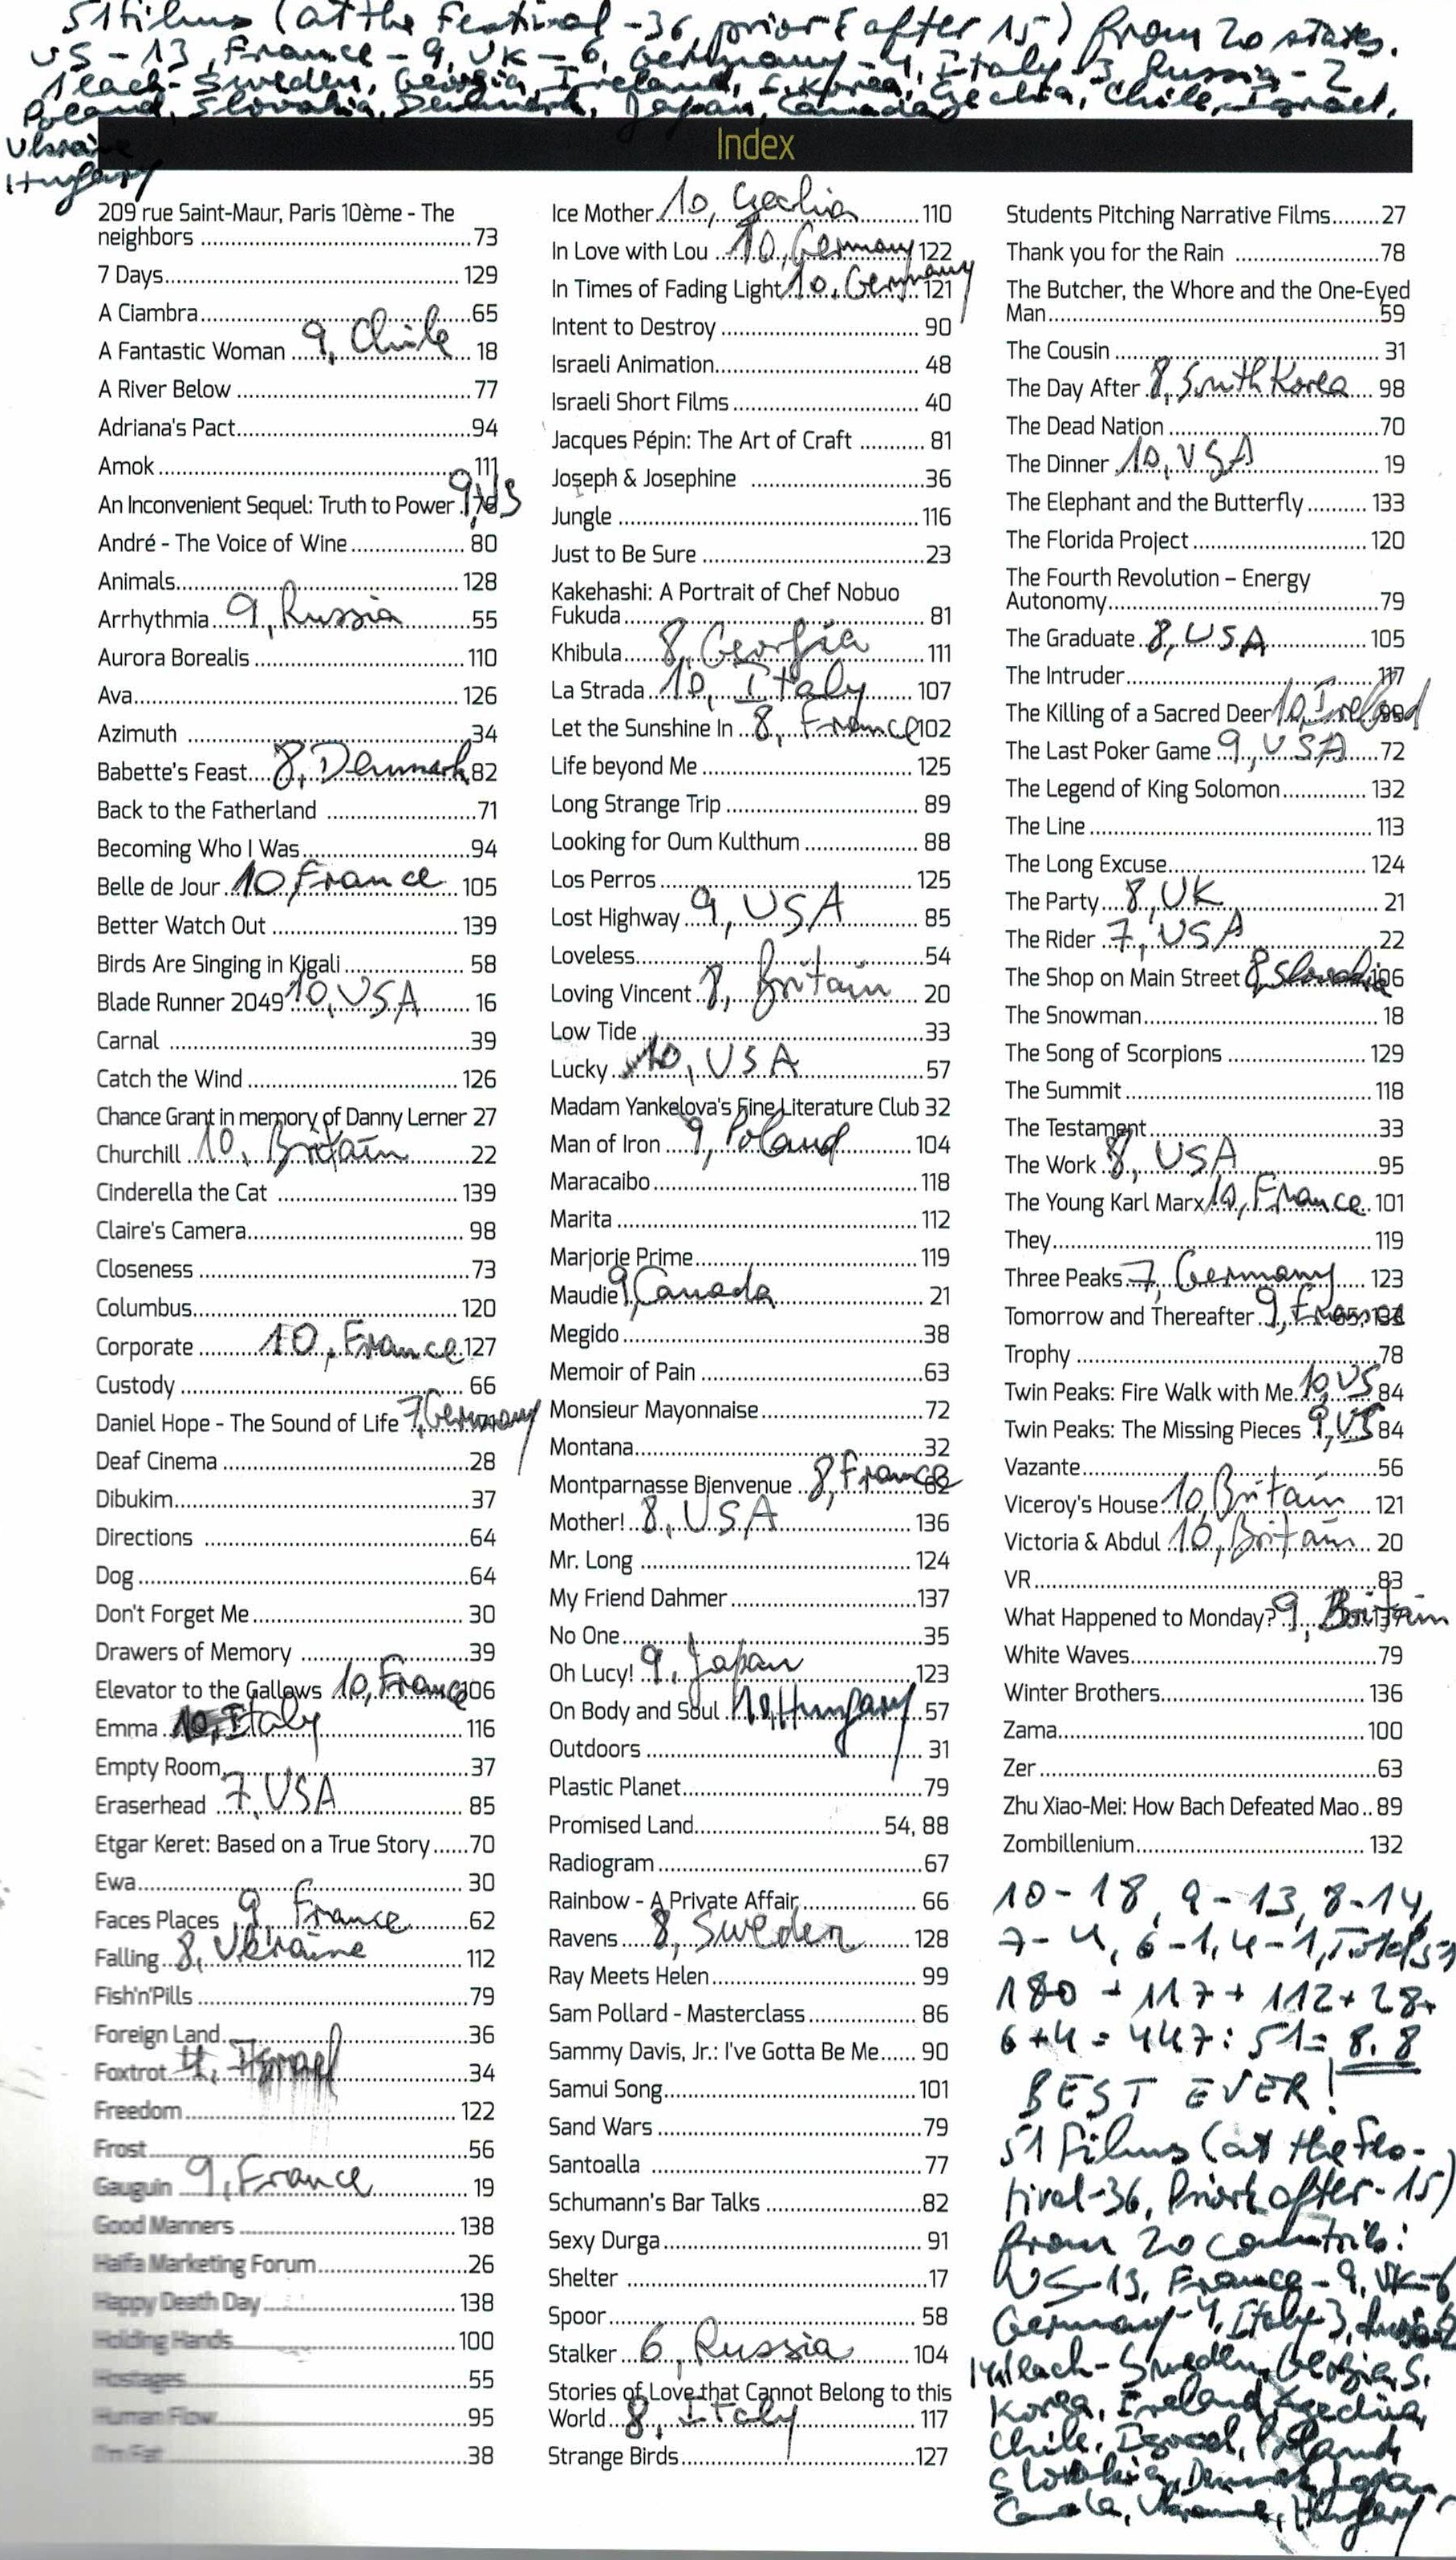 51 films (at the Festival - 36, prior & after 15) from 20 states.
US - 13, France - 9, UK - 6, Germany - 4, Italy - 3, Russia - 2
1 each - Sweden, Georgia, Ireland, S. Korea, Czechia, Chile, Israel,
Poland, Slovakia, Denmark, Japan, Canada
Ukraine
Hungary
Index
209 rue Saint-Maur, Paris 10ème - The
neighbors 73
7 Days 129
A Ciambra 65
A Fantastic Woman 9, Chile 18
A River Below 77
Adriana's Pact 94
Amok 111
An Inconvenient Sequel: Truth to Power 9, US
André - The Voice of Wine 80
Animals 128
Arrhythmia 9, Russia 55
Aurora Borealis 110
Ava 126
Azimuth 34
Babette's Feast 8, Denmark 82
Back to the Fatherland 71
Becoming Who I Was 94
Belle de Jour 10 France 105
Better Watch Out 139
Birds Are Singing in Kigali 58
Blade Runner 2049 10, USA 16
Carnal 39
Catch the Wind 126
Chance Grant in memory of Danny Lerner 27
Churchill 10, Britain 22
Cinderella the Cat 139
Claire's Camera 98
Closeness 73
Columbus 120
Corporate 10, France 127
Custody 66
Daniel Hope - The Sound of Life 7, Germany
Deaf Cinema 28
Dibukim 37
Directions 64
Dog 64
Don't Forget Me 30
Drawers of Memory 39
Elevator to the Gallows 10, France 106
Emma 10, Italy 116
Empty Room 37
Eraserhead 7, USA 85
Etgar Keret: Based on a True Story 70
Ewa 30
Faces Places 9 France 62
Falling 8, Ukraine 112
Fish'n'Pills 79
Foreign Land 36
Foxtrot 4, Israel 34
Freedom 122
Frost 56
Gauguin 9, France 19
Good Manners 138
Haifa Marketing Forum 26
Happy Death Day 138
Holding Hands 100
Hostages 55
Human Flow 95
I'm Fat 38
Ice Mother 10, Czechia 110
In Love with Lou 10, Germany 122
In Times of Fading Light 10, Germany 121
Intent to Destroy 90
Israeli Animation 48
Israeli Short Films 40
Jacques Pépin: The Art of Craft 81
Joseph & Josephine 36
Jungle 116
Just to Be Sure 23
Kakehashi: A Portrait of Chef Nobuo
Fukuda 81
Khibula 8, Georgia 111
La Strada 10, Italy 107
Let the Sunshine In 8, France 102
Life beyond Me 125
Long Strange Trip 89
Looking for Oum Kulthum 88
Los Perros 125
Lost Highway 9, USA 85
Loveless 54
Loving Vincent 8, Britain 20
Low Tide 33
Lucky 10, USA 57
Madam Yankelova's Fine Literature Club 32
Man of Iron 9, Poland 104
Maracaibo 118
Marita 112
Marjorie Prime 119
Maudie 9, Canada 21
Megido 38
Memoir of Pain 63
Monsieur Mayonnaise 72
Montana 32
Montparnasse Bienvenue 8, France 62
Mother! 8, USA 136
Mr. Long 124
My Friend Dahmer 137
No One 35
Oh Lucy! 9, Japan 123
On Body and Soul 10, Hungary 57
Outdoors 31
Plastic Planet 79
Promised Land 54, 88
Radiogram 67
Rainbow - A Private Affair 66
Ravens 8, Sweden 128
Ray Meets Helen 99
Sam Pollard - Masterclass 86
Sammy Davis, Jr.: I've Gotta Be Me 90
Samui Song 101
Sand Wars 79
Santoalla 77
Schumann's Bar Talks 82
Sexy Durga 91
Shelter 17
Spoor 58
Stalker 6, Russia 104
Stories of Love that Cannot Belong to this
World 8, Italy 117
Strange Birds 127
Students Pitching Narrative Films 27
Thank you for the Rain 78
The Butcher, the Whore and the One-Eyed
Man 59
The Cousin 31
The Day After 8, South Korea 98
The Dead Nation 70
The Dinner 10, USA 19
The Elephant and the Butterfly 133
The Florida Project 120
The Fourth Revolution – Energy
Autonomy 79
The Graduate 8, USA 105
The Intruder 117
The Killing of a Sacred Deer 10, Ireland 99
The Last Poker Game 9, USA 72
The Legend of King Solomon 132
The Line 113
The Long Excuse 124
The Party 8, UK 21
The Rider 7, USA 22
The Shop on Main Street 8, Slovakia 106
The Snowman 18
The Song of Scorpions 129
The Summit 118
The Testament 33
The Work 8, USA 95
The Young Karl Marx 10, France 101
They 119
Three Peaks 7, Germany 123
Tomorrow and Thereafter 9, France 65, 133
Trophy 78
Twin Peaks: Fire Walk with Me 10 US 84
Twin Peaks: The Missing Pieces 9, US 84
Vazante 56
Viceroy's House 10, Britain 121
Victoria & Abdul 10, Britain 20
VR 83
What Happened to Monday? 9, Britain 137
White Waves 79
Winter Brothers 136
Zama 100
Zer 63
Zhu Xiao-Mei: How Bach Defeated Mao 89
Zombillenium 132
10 - 18, 9 - 13, 8 - 14,
7 - 4, 6 - 1, 4 - 1, Total 51
180 + 117 + 112 + 28 +
6 + 4 = 447 : 51 = 8.8
BEST EVER!
51 films (at the Fes-
tival - 36, Prior & after - 15)
from 20 countries:
US - 13, France - 9, UK - 6
Germany - 4, Italy 3, Russia 2
1 each - Sweden, Georgia, S.
Korea, Ireland, Czechia,
Chile, Israel, Poland,
Slovakia, Denmark, Japan,
Canada, Ukraine, Hungary